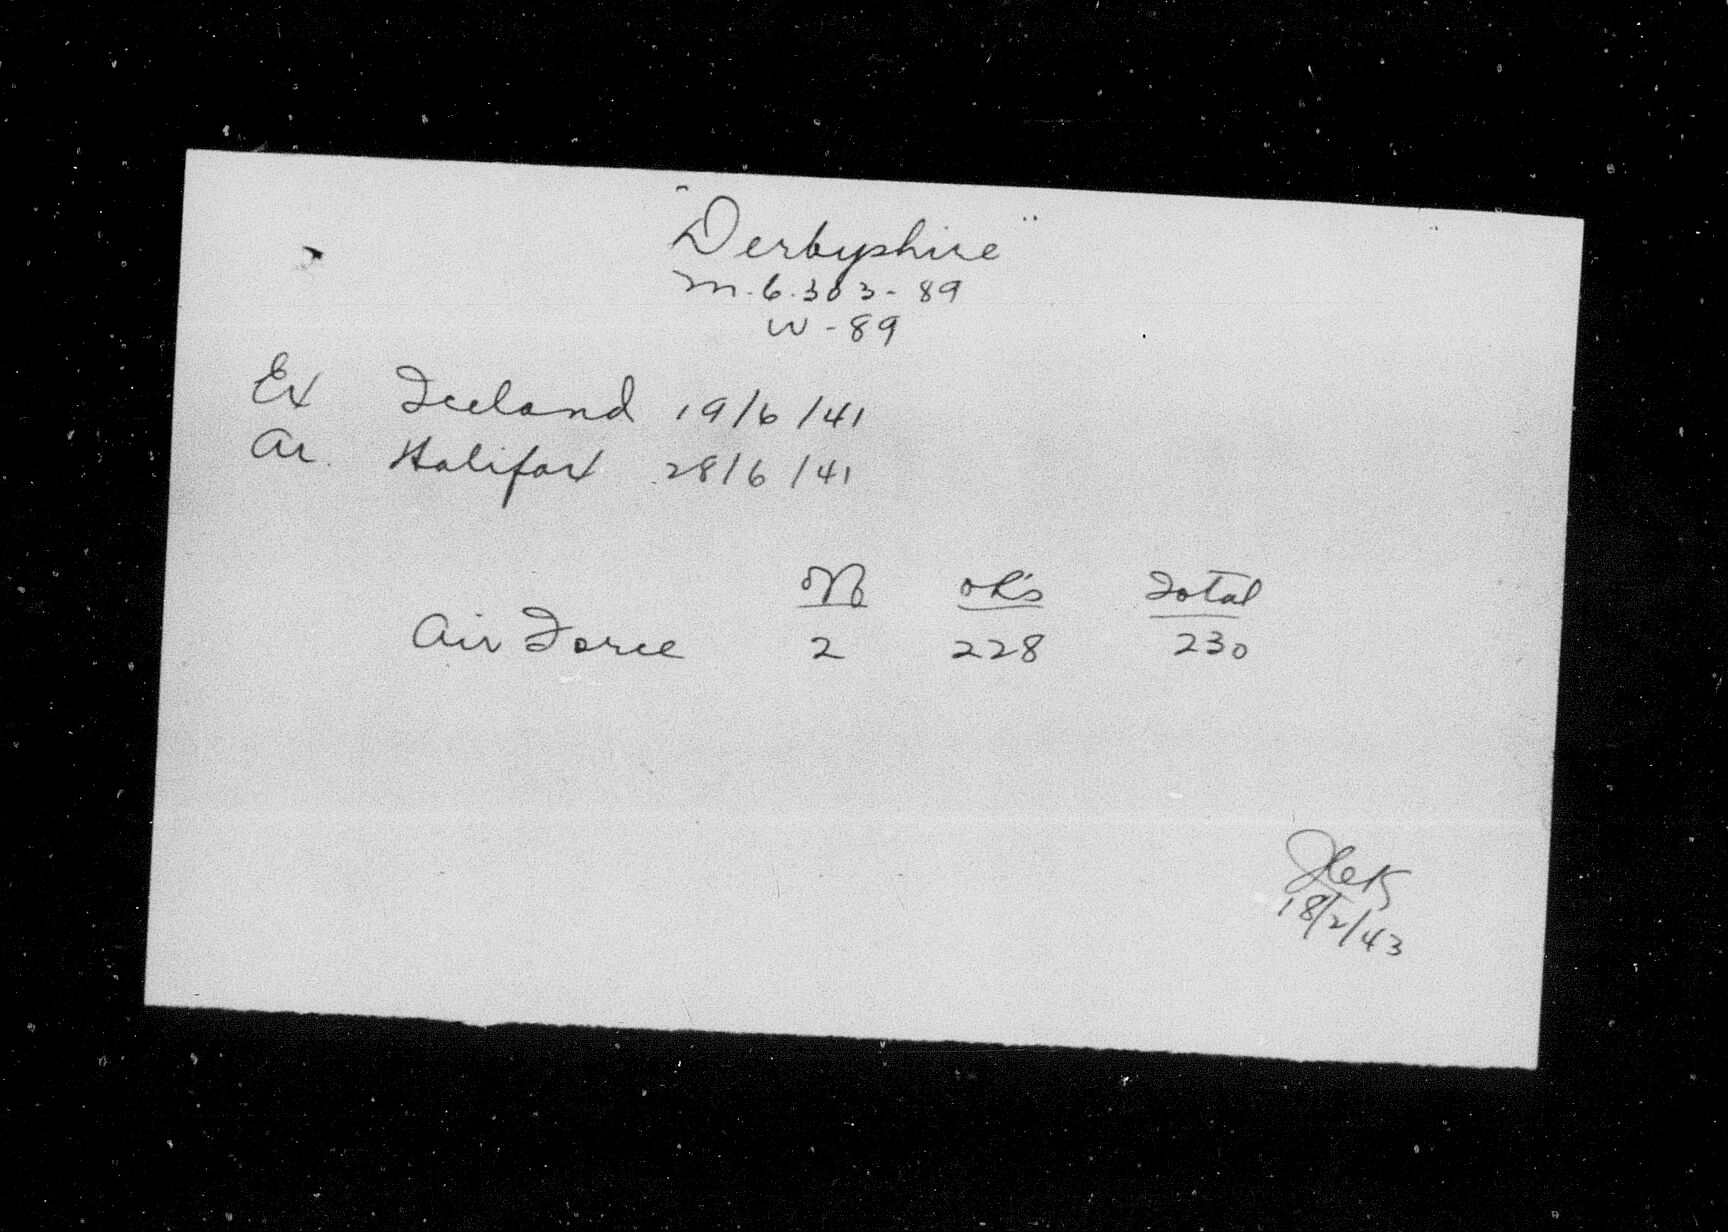 "Derbyshire"
M.6.303-89
W-89
Ex Iceland 19/6/41
Ar. Halifax 28/6/41
Off OR's Total
Air Force 2 228 230
18/2/43